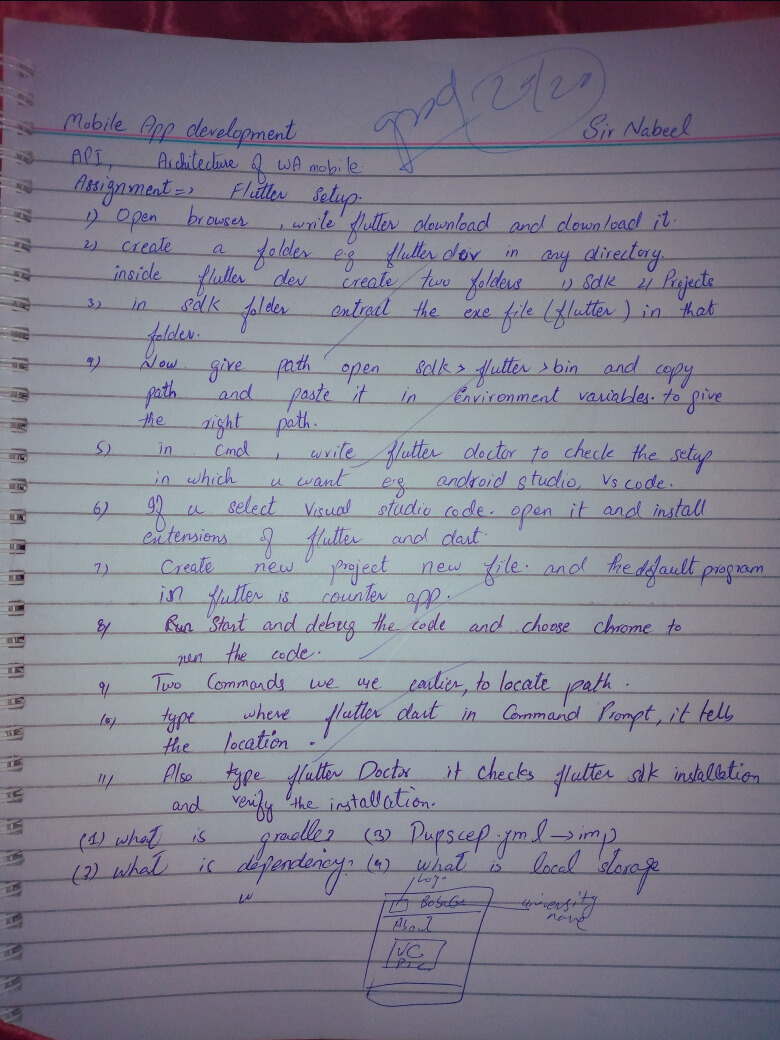 good 20/20
Mobile App development Sir Nabeel
API, Architecture of WA mobile
Assignment => Flutter Setup.
1) Open browser, write flutter download and download it.
2) create a folder e.g flutter dev in any directory.
inside flutter dev create two folders 1) Sdk 2) Projects
3) in sdk folder extract the exe file (flutter) in that
folder.
4) Now give path open sdk > flutter > bin and copy
path and paste it in Environment variables. to give
the right path.
5) in cmd, write flutter doctor to check the setup
in which u want e.g android studio, Vs code.
6) If u select Visual studio code. open it and install
extensions of flutter and dart.
7) Create new project new file. and the default program
in flutter is counter app.
8) Run Start and debug the code and choose chrome to
run the code.
9) Two Commands we use earlier, to locate path.
10) type where flutter dart in Command Prompt, it tells
the location.
11) Also type flutter Doctor it checks flutter sdk installation
and verify the installation.
(1) what is gradle? (3) Pupscep.yml → imp
(2) what is dependency? (4) what is local storage
Logo
university
name
About
VC
Pic